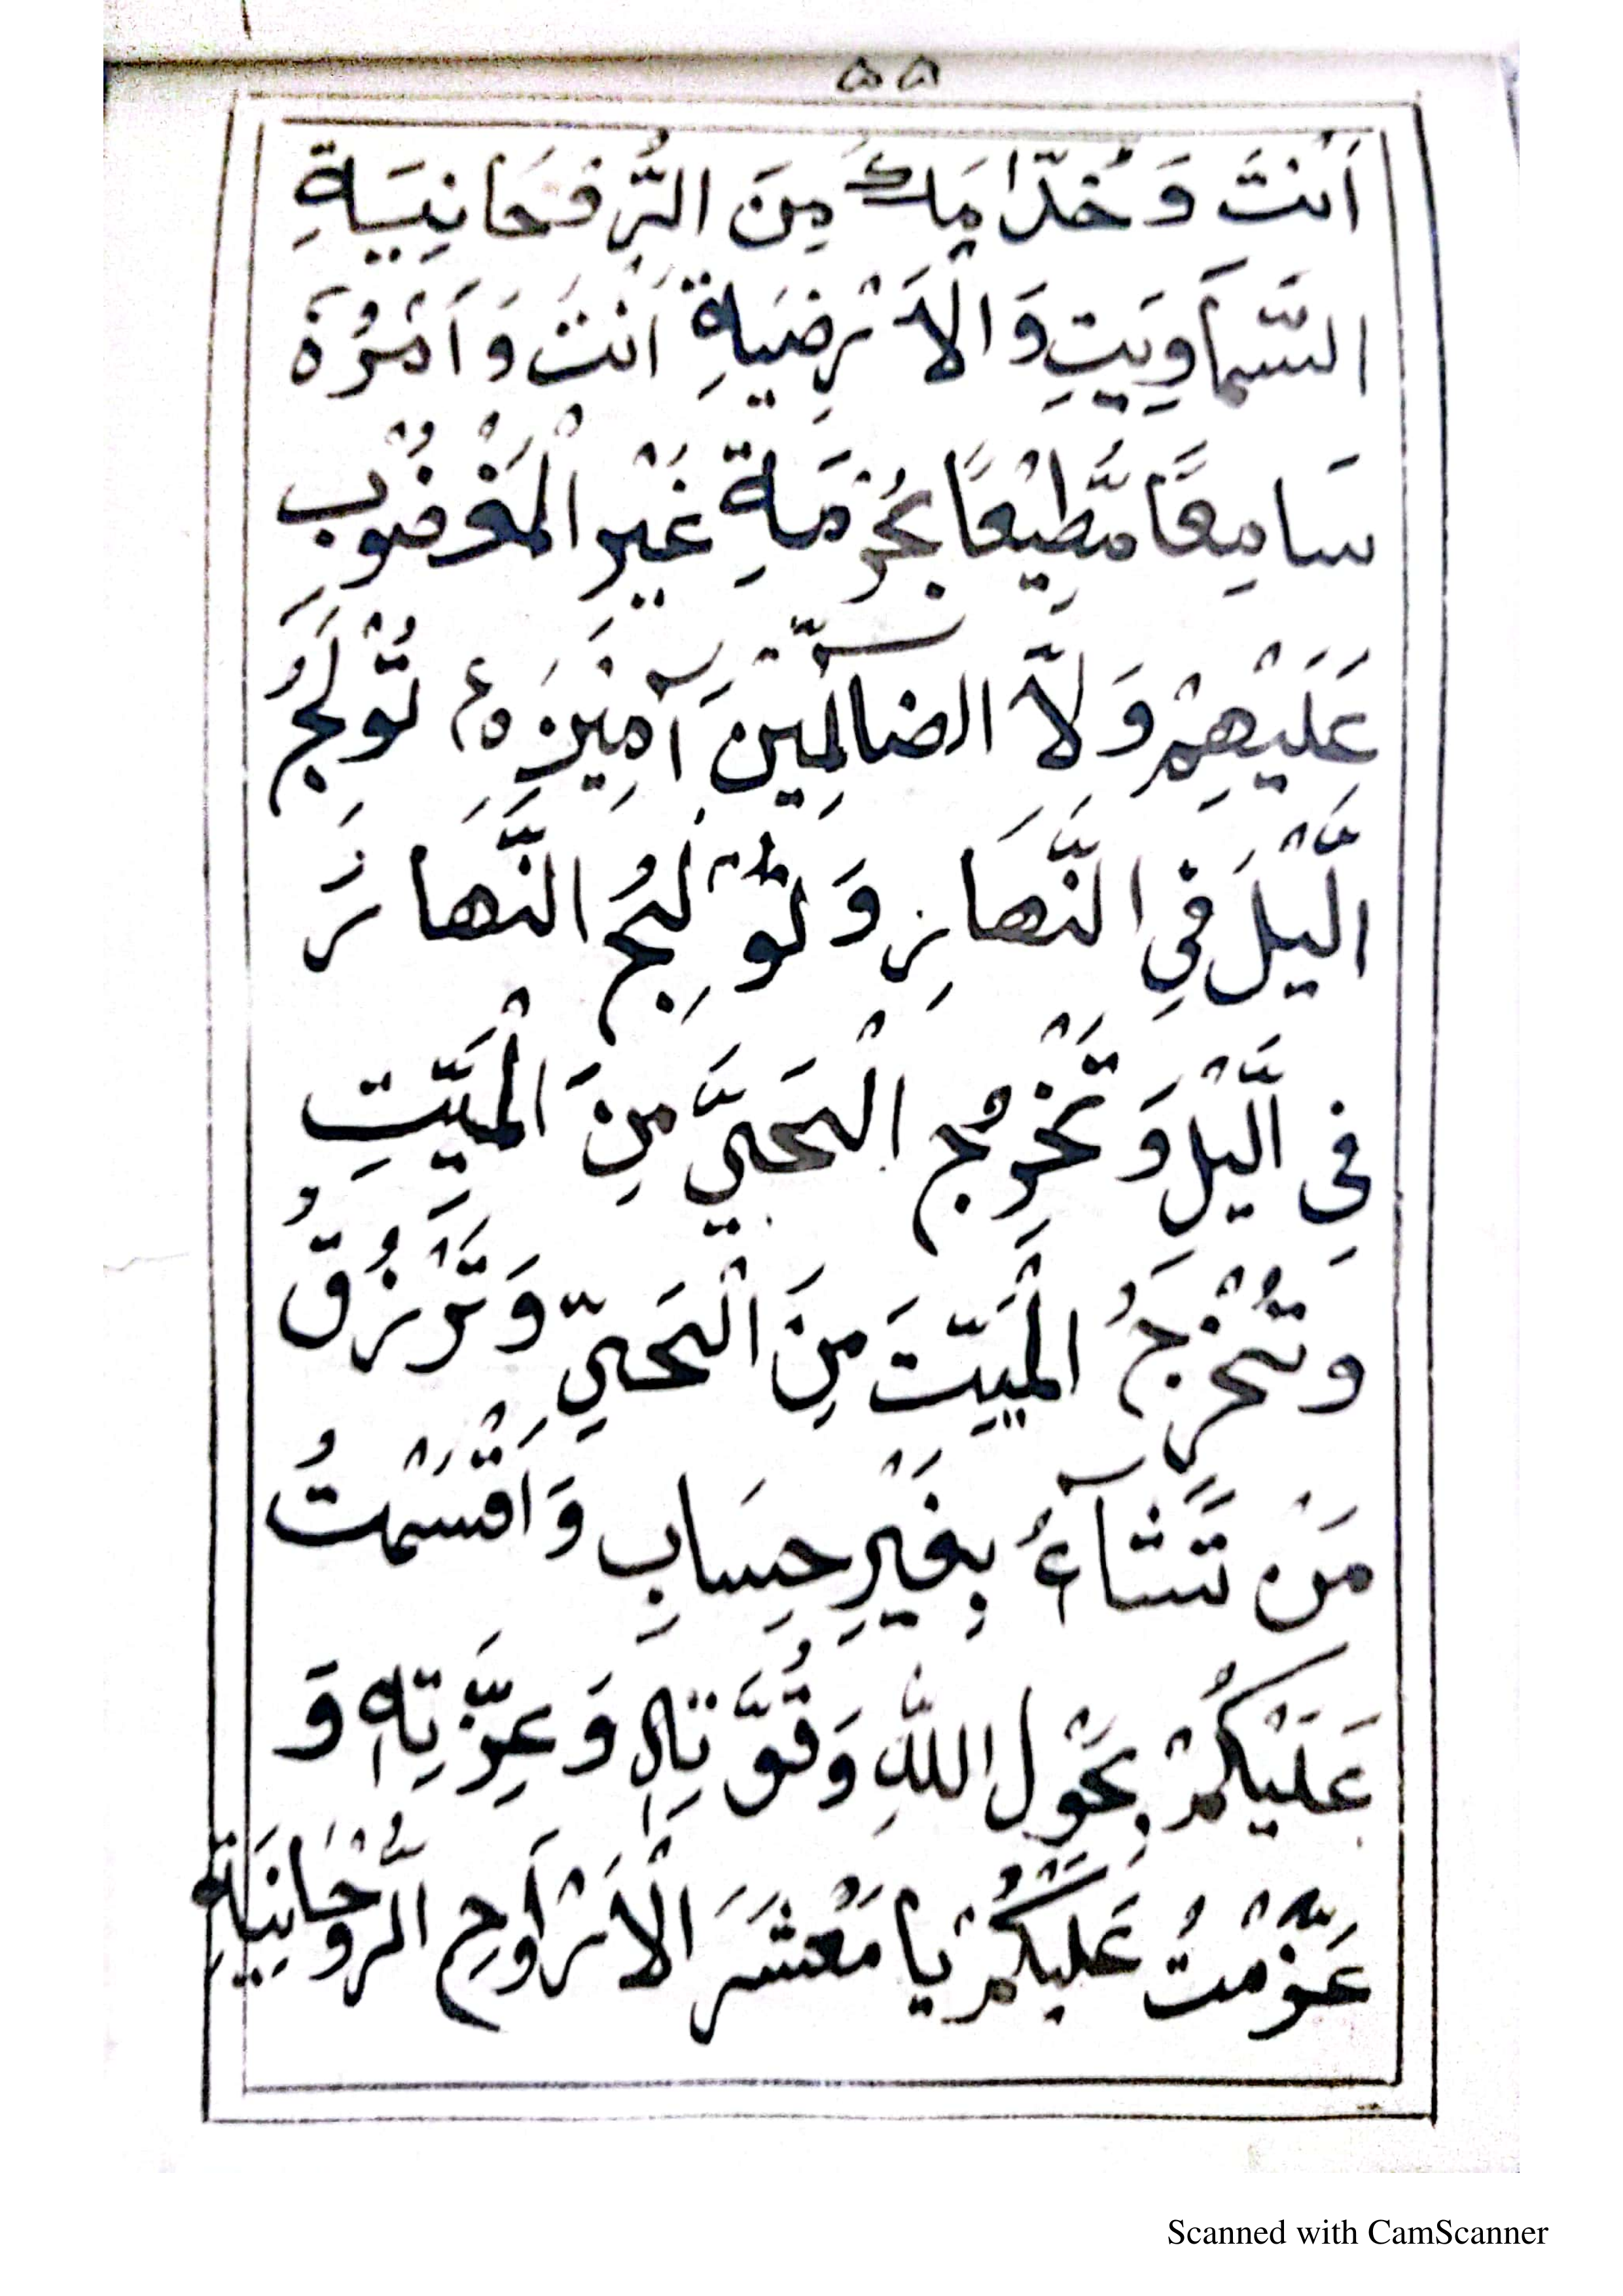 ۵۵
اَنْتَ وَخُدَّامَكَ مِنَ الرُّوْحَانِيَةِ
السَّمَاوِيَتِ وَالْاَرْضِيَةِ اَنْتَ وَاَمْرُهٗ
سَامِعًا مُّطِيْعًا بِحُرْمَةِ غَيْرِ الْمَغْضُوْبِ
عَلَيْهِمْ وَلَا الضَّالِّيْنَ آمِيْنَ ه تُوْلِجُ
الَّيْلَ فِى النَّهَارِ وَتُوْلِجُ النَّهَارَ
فِى الَّيْلِ وَتُخْرِجُ الْحَيَّ مِنَ الْمَيِّتِ
وَتُخْرِجُ الْمَيِّتَ مِنَ الْحَيِّ وَتَرْزُقُ
مَنْ تَشَآءُ بِغَيْرِ حِسَابٍ وَاَقْسَمْتُ
عَلَيْكُمْ بِحَوْلِ اللّٰهِ وَقُوَّتِهٖ وَعِزَّتِهٖ وَ
عَزَّمْتُ عَلَيْكُمْ يَا مَعْشَرَ الْاَرْوَاحِ الرُّوْحَانِيَةِ
Scanned with CamScanner